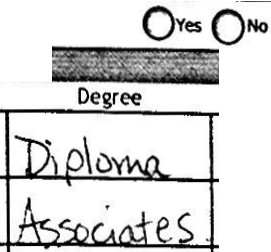 Yes No
Degree
Diploma
Associates